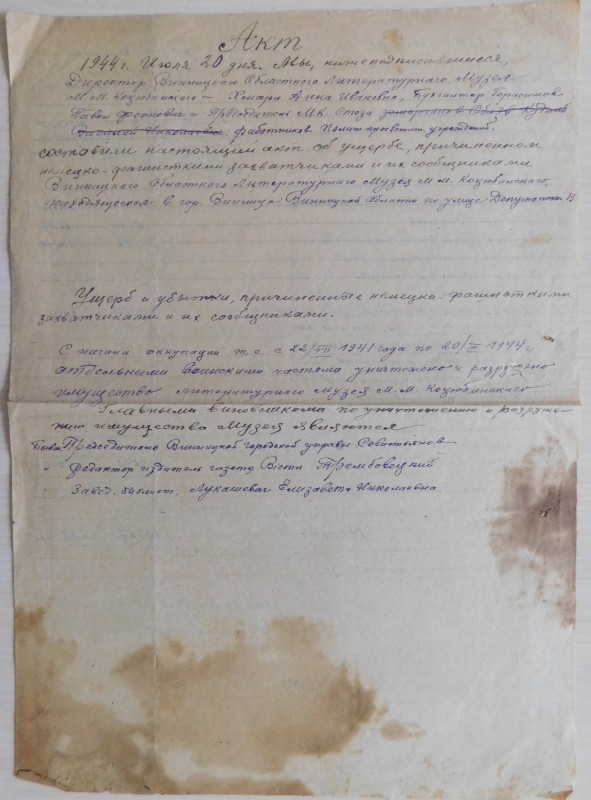 Акт
1944 г. Июля 20 дня. Мы, нижеподписавшиеся,
Директор Винницкого Областного Литературного Музея
М.М. Коцюбинского – Хмара Анна Ивановна, Бухгалтер Герасимов
Павел и Председатель М.К. Союза
Николаевич, работников Полит просвет учреждений,
составили настоящий акт об ущербе, причиненном
немецко-фашисткими захватчиками и их сообщниками
Винницкого Областного Литературного Музея М.М. Коцюбинского,
находящегося в гор. Винница Винницкой Области по улице Депутатской 15
Ущерб и убытки, причинените немецко-фашисткими
захватчиками и их сообщниками.
С начала оккупации т.е. с 22/VII 1941 года по 20/III 1944 г.
отдельними Воинскими частями уничтожено и разрушено
имущество Литературного Музея М.М. Коцюбинского
Главными виновниками по уничтожению и разруше-
нии имущества Музея являются
Бывш Председатель Винницкой городской управы Севастьянов
" Редактор издатель газеты Вісти Трембовецкий
" Завод. библиот. Лукашевич Елизавета Николаевна